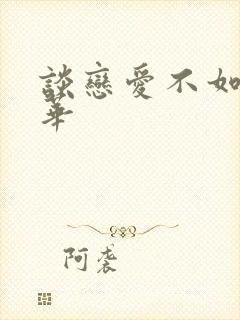 談戀愛不如
華
阿袭